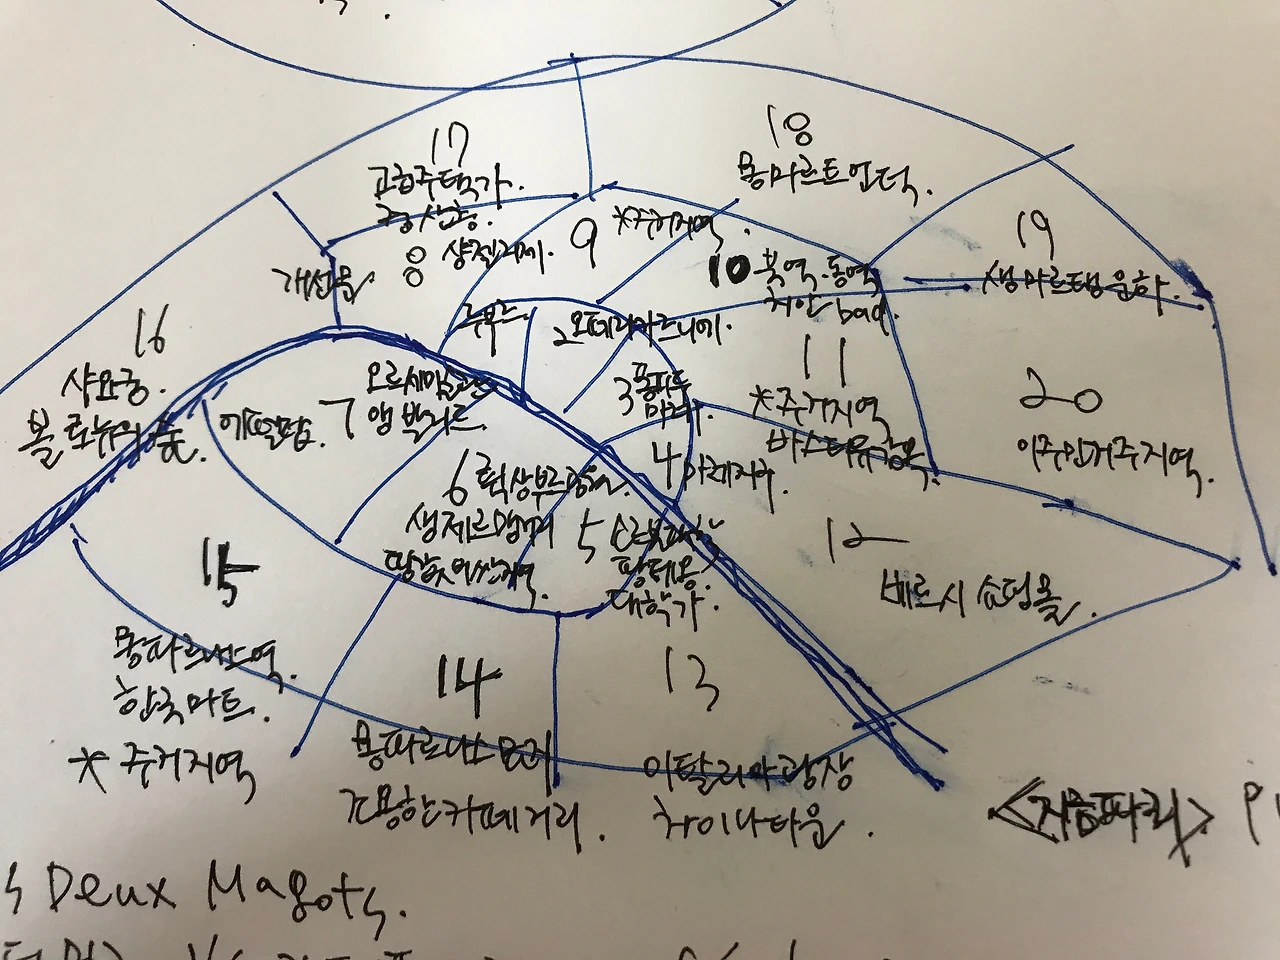 17
고급주택가.
중산층.
18
몽마르트언덕.
8 샹젤리제.
9 *주거지역.
10 북역.동역
치안 bad.
19
생마르탱운하.
개선문
16
샤요궁.
볼로뉴의 숲.
루브르.
2 오페라가르니에.
3 퐁피두
마레.
11
*주거지역
바스티유광장
20
이주민거주지역.
에펠탑. 7
오르세미술관
앵발리드.
4 마레지구.
6 뤽상부르공원.
생제르맹거리
5 소르본대학
팡테옹.
대학가.
12
베르시 쇼핑몰.
15
몽파르나스역.
한국마트.
* 주거지역
14
몽파르나스묘지
조용한카페거리.
13
이탈리아광장
차이나타운.
Deux Magots.